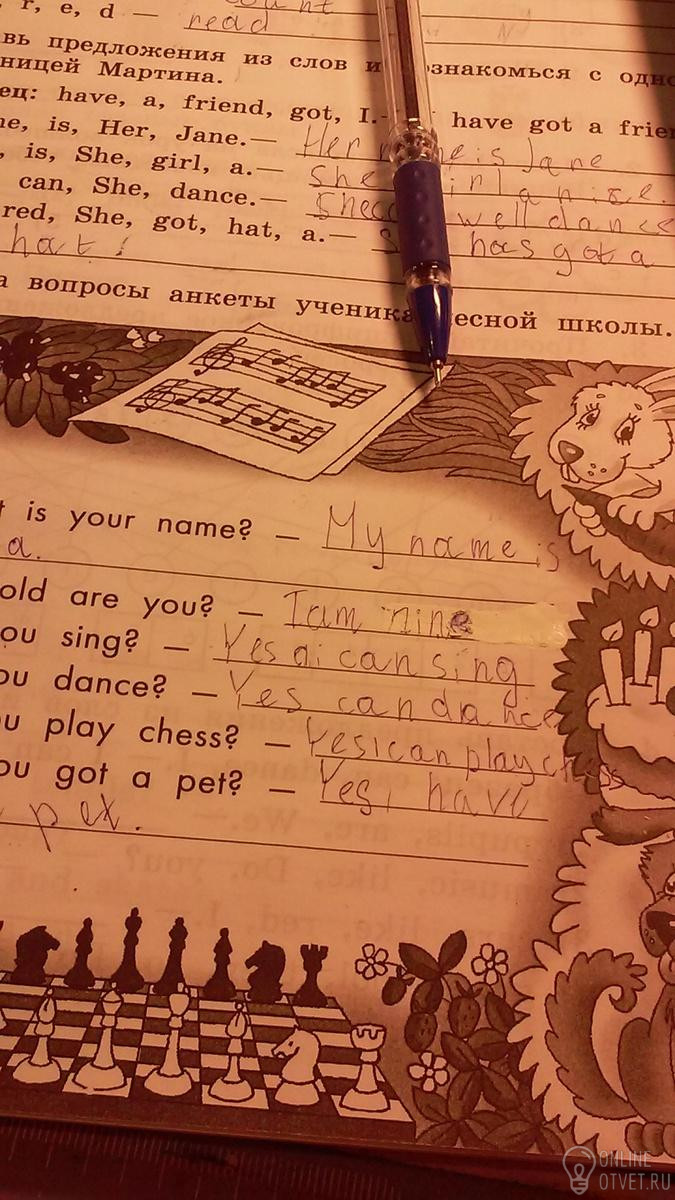 r, e, d — read
вь предложения из слов и ознакомься с одно
ницей Мартина.
ец: have, a, friend, got, I.— have got a frien
ne, is, Her, Jane.— Her me is Jane.
, is, She, girl, a.— She
can, She, dance.— well dance
red, She, got, hat, a.— has got a
hat.
а вопросы анкеты ученика лесной школы.
t is your name? — My name is
a.
old are you? — I am nine
ou sing? — Yes i can sing
ou dance? — Yes can dance
u play chess? — Yes I can play chess
ou got a pet? — Yes, i have
pet.
ONLINE
OTVET.RU